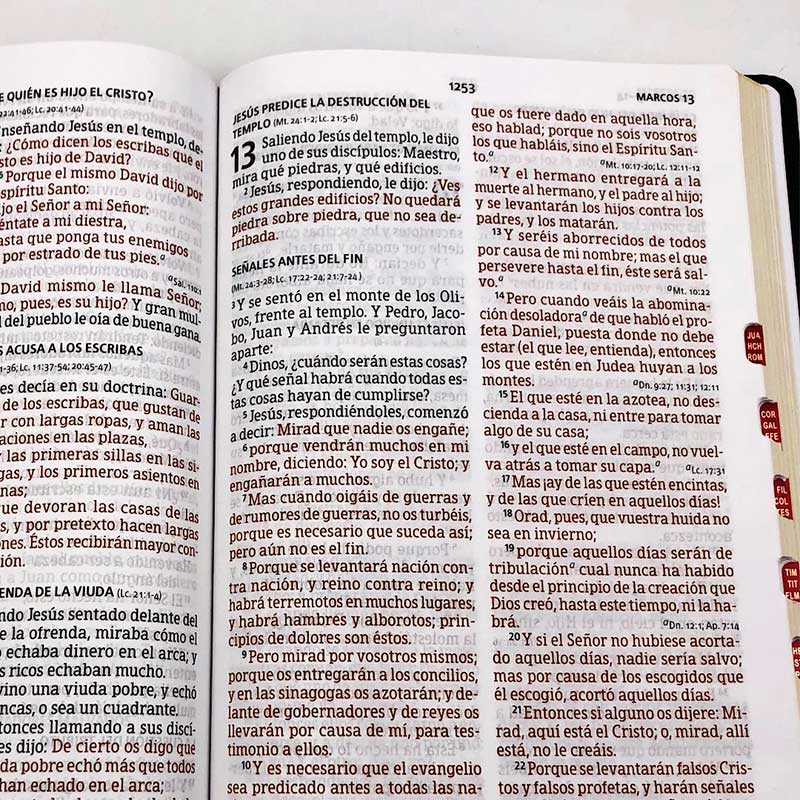 E QUIÉN ES HIJO EL CRISTO?
22:41-46; Lc. 20:41-44)
nseñando Jesús en el templo, de-
: ¿Cómo dicen los escribas que el
sto es hijo de David?
Porque el mismo David dijo por
spíritu Santo:
jo el Señor a mi Señor:
éntate a mi diestra,
asta que ponga tus enemigos
por estrado de tus pies.a
a Sal. 110:1
David mismo le llama Señor;
mo, pues, es su hijo? Y gran mul-
d del pueblo le oía de buena gana.
S ACUSA A LOS ESCRIBAS
1-36; Lc. 11:37-54; 20:45-47)
es decía en su doctrina: Guar-
de los escribas, que gustan de
r con largas ropas, y aman las
aciones en las plazas,
y las primeras sillas en las si-
gas, y los primeros asientos en
nas;
que devoran las casas de las
s, y por pretexto hacen largas
ones. Éstos recibirán mayor con-
ción.
ENDA DE LA VIUDA (Lc. 21:1-4)
ndo Jesús sentado delante del
e la ofrenda, miraba cómo el
o echaba dinero en el arca; y
s ricos echaban mucho.
vino una viuda pobre, y echó
ncas, o sea un cuadrante.
onces llamando a sus discí-
es dijo: De cierto os digo que
da pobre echó más que todos
han echado en el arca;
1253
MARCOS 13
JESÚS PREDICE LA DESTRUCCIÓN DEL
TEMPLO (Mt. 24:1-2; Lc. 21:5-6)
13 Saliendo Jesús del templo, le dijo
uno de sus discípulos: Maestro,
mira qué piedras, y qué edificios.
2 Jesús, respondiendo, le dijo: ¿Ves
estos grandes edificios? No quedará
piedra sobre piedra, que no sea de-
rribada.
SEÑALES ANTES DEL FIN
(Mt. 24:3-28; Lc. 17:22-24; 21:7-24)
3 Y se sentó en el monte de los Oli-
vos, frente al templo. Y Pedro, Jaco-
bo, Juan y Andrés le preguntaron
aparte:
4 Dinos, ¿cuándo serán estas cosas?
¿Y qué señal habrá cuando todas es-
tas cosas hayan de cumplirse?
5 Jesús, respondiéndoles, comenzó
a decir: Mirad que nadie os engañe;
6 porque vendrán muchos en mi
nombre, diciendo: Yo soy el Cristo; y
engañarán a muchos.
7 Mas cuando oigáis de guerras y
de rumores de guerras, no os turbéis,
porque es necesario que suceda así;
pero aún no es el fin.
8 Porque se levantará nación con-
tra nación, y reino contra reino; y
habrá terremotos en muchos lugares,
y habrá hambres y alborotos; prin-
cipios de dolores son éstos.
9 Pero mirad por vosotros mismos;
porque os entregarán a los concilios,
y en las sinagogas os azotarán; y de-
lante de gobernadores y de reyes os
llevarán por causa de mí, para tes-
timonio a ellos.
10 Y es necesario que el evangelio
sea predicado antes a todas las na-
que os fuere dado en aquella hora,
eso hablad; porque no sois vosotros
los que habláis, sino el Espíritu San-
to.a
a Mt. 10:17-20; Lc. 12:11-12
12 Y el hermano entregará a la
muerte al hermano, y el padre al hijo;
y se levantarán los hijos contra los
padres, y los matarán.
13 Y seréis aborrecidos de todos
por causa de mi nombre; mas el que
persevere hasta el fin, éste será sal-
vo.a
a Mt. 10:22
14 Pero cuando veáis la abomina-
ción desoladoraa de que habló el pro-
feta Daniel, puesta donde no debe
estar (el que lee, entienda), entonces
los que estén en Judea huyan a los
montes.
a Dn. 9:27; 11:31; 12:11
15 El que esté en la azotea, no des-
cienda a la casa, ni entre para tomar
algo de su casa;
16 y el que esté en el campo, no vuel-
va atrás a tomar su capa.a
a Lc. 17:31
17 Mas ¡ay de las que estén encintas,
y de las que críen en aquellos días!
18 Orad, pues, que vuestra huida no
sea en invierno;
19 porque aquellos días serán de
tribulacióna cual nunca ha habido
desde el principio de la creación que
Dios creó, hasta este tiempo, ni la ha-
brá.
a Dn. 12:1; Ap. 7:14
20 Y si el Señor no hubiese acorta-
do aquellos días, nadie sería salvo;
mas por causa de los escogidos que
él escogió, acortó aquellos días.
21 Entonces si alguno os dijere: Mi-
rad, aquí está el Cristo; o, mirad, allí
está, no le creáis.
22 Porque se levantarán falsos Cris-
tos y falsos profetas, y harán señales
JUA
HCH
ROM
COR
GAL
EFE
FIL
COL
TES
TIM
TIT
FLM